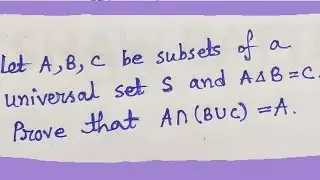 Let A, B, C be subsets of a
universal set S and A∆B = C.
Prove that A∩(B∪C) = A.